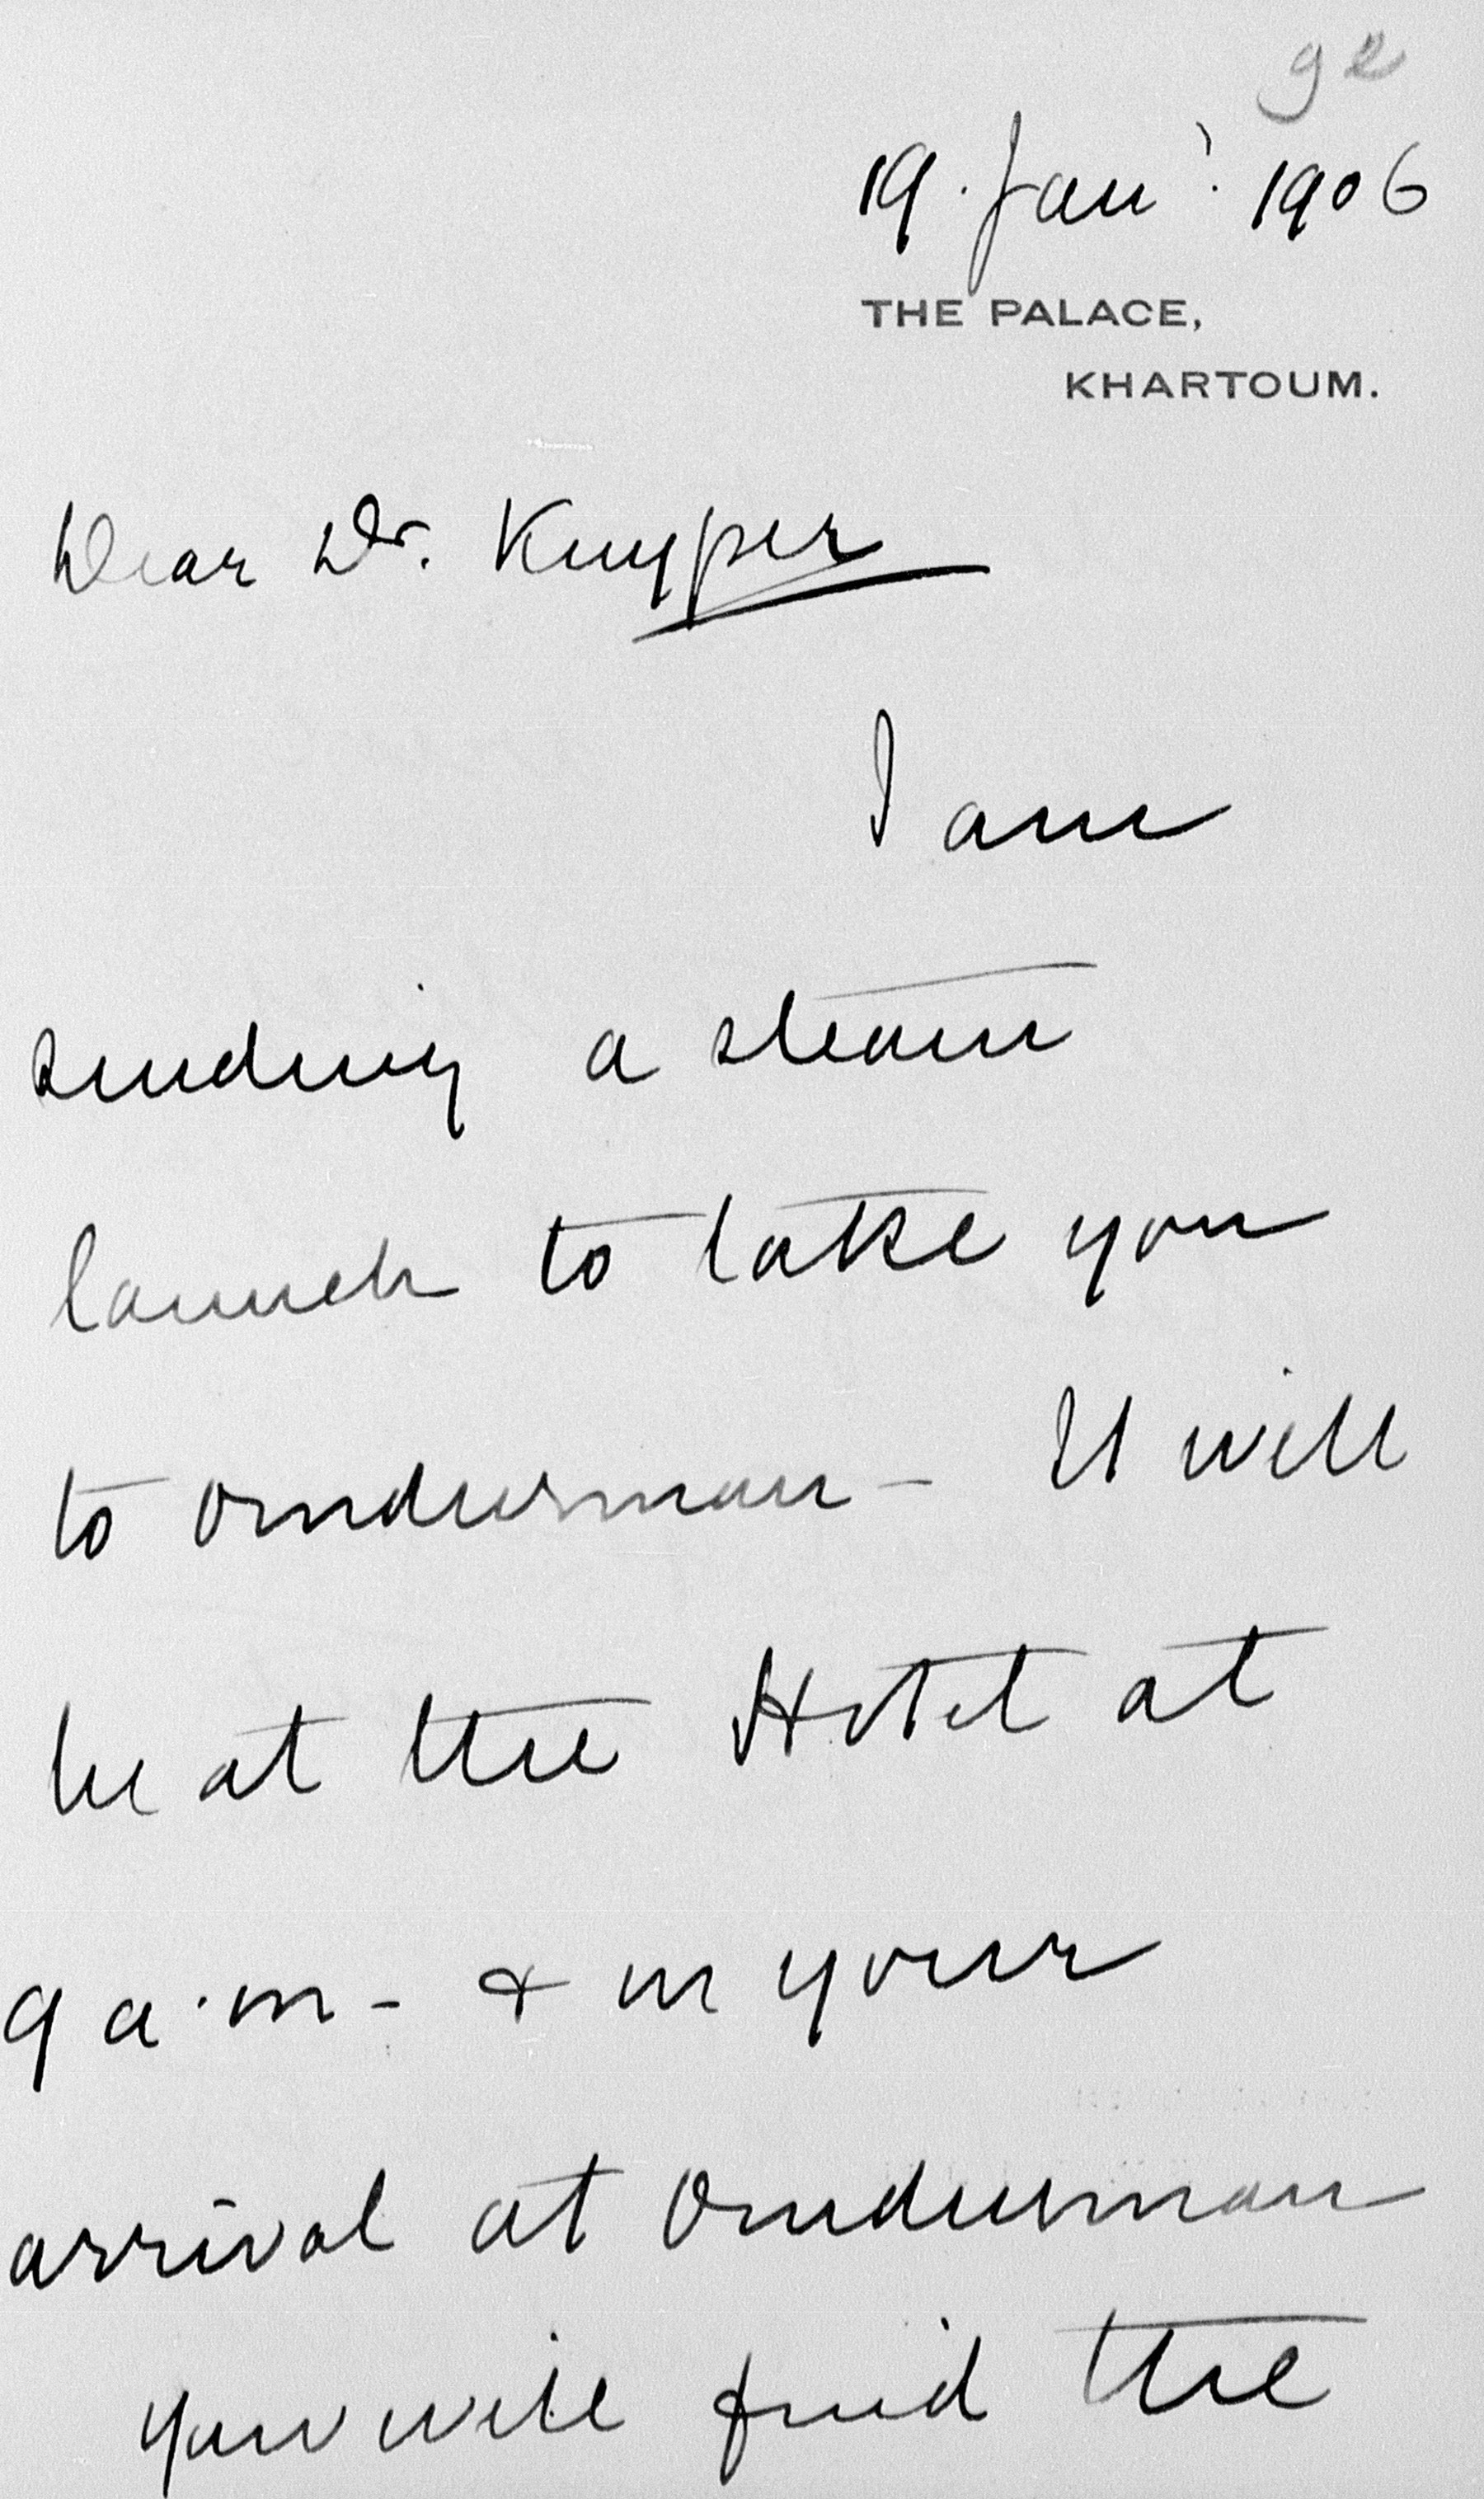 92
19. Jany. 1906
THE PALACE,
KHARTOUM.
Dear Dr. Kuyper
I am
sending a steam
launch to take you
to Omdurman - It will
be at the Hotel at
9 a.m - & on your
arrival at Omdurman
you will find the